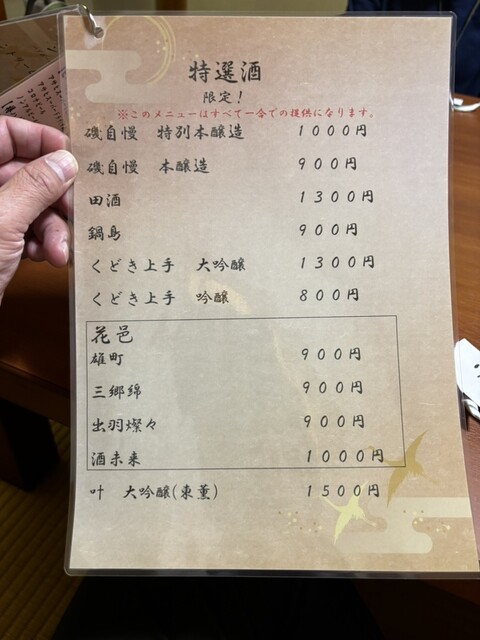 特選酒
限定！
※このメニューはすべて一合での提供になります。
磯自慢 特別本醸造 1000円
磯自慢 本醸造 900円
田酒 1300円
鍋島 900円
くどき上手 大吟醸 1300円
くどき上手 吟醸 800円
花邑
雄町 900円
三郷綿 900円
出羽燦々 900円
酒未来 1000円
叶 大吟醸(東薫) 1500円